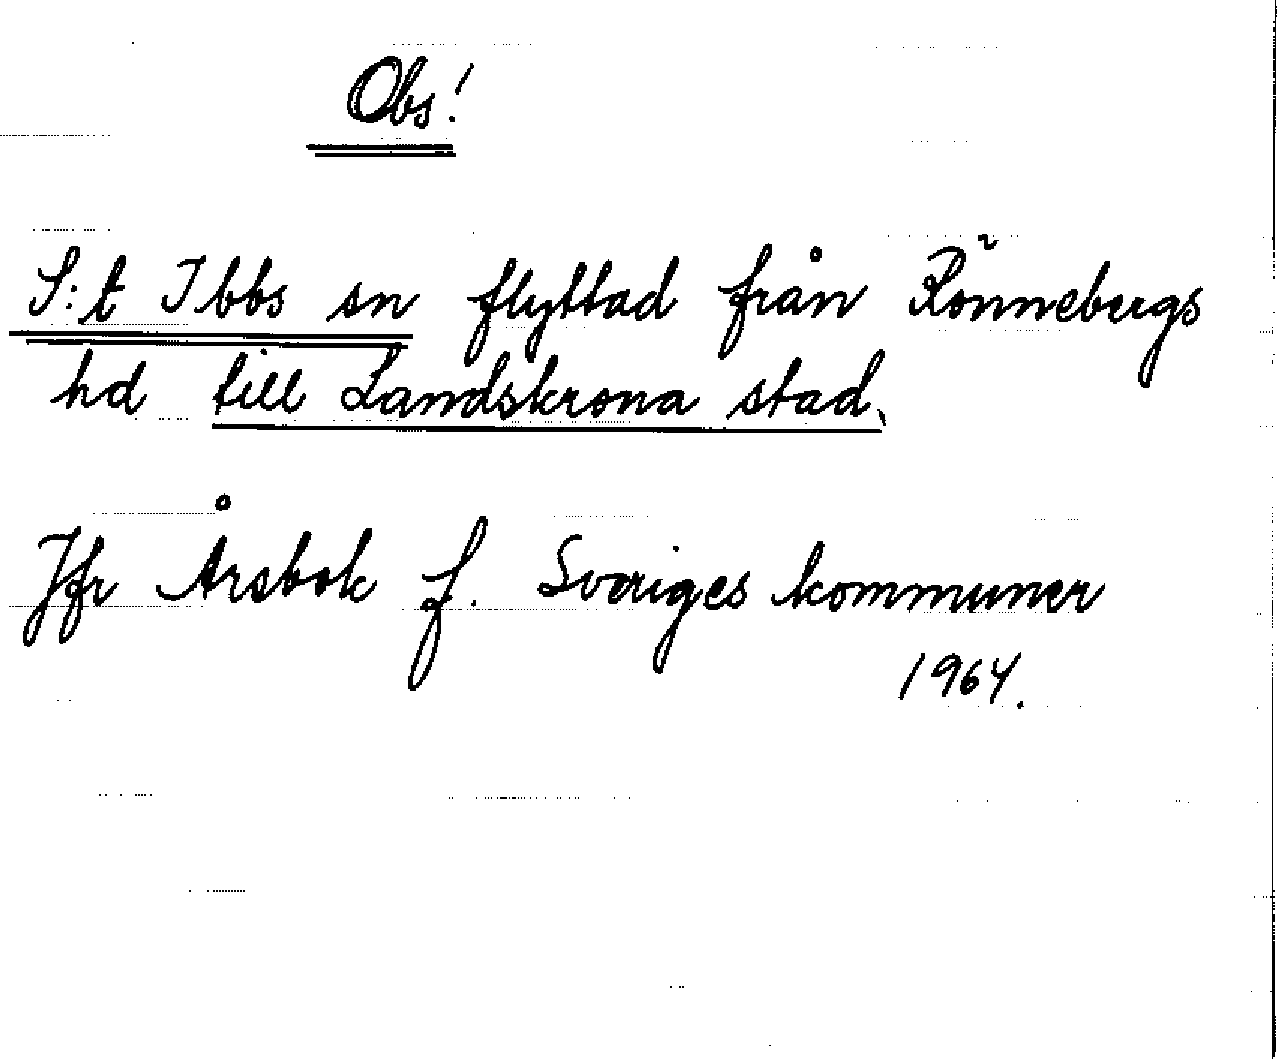 Obs!
S:t Ibbs sn flyttad från Rönnebergs
hd till Landskrona stad.
Jfr Årsbok f. Sveriges kommuner
1964.